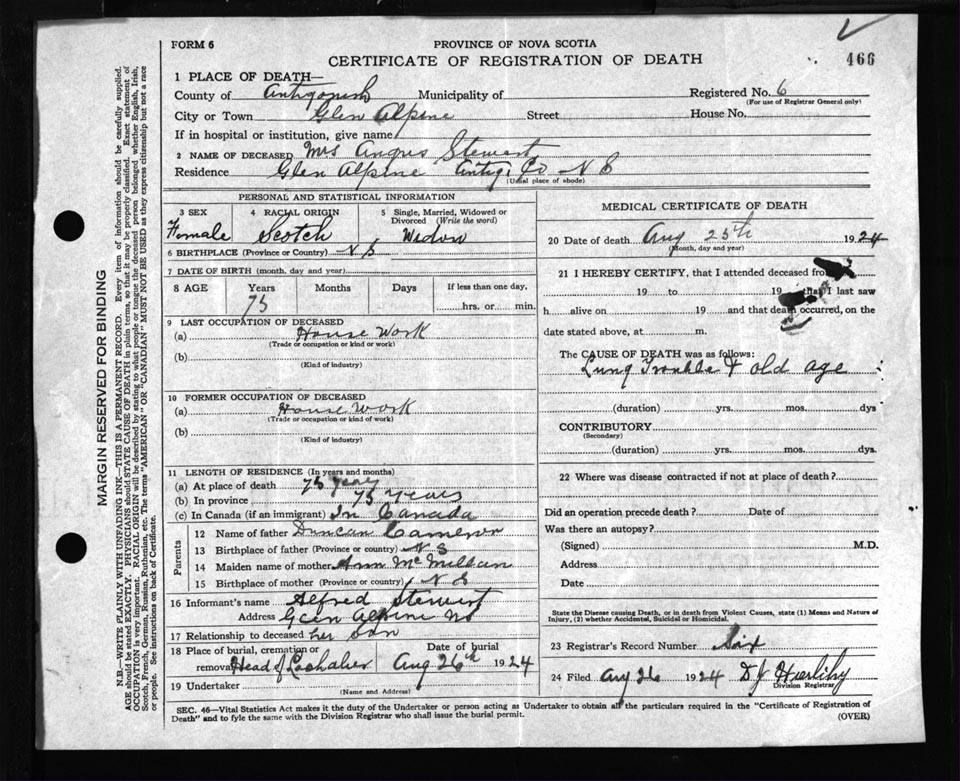 FORM 6
PROVINCE OF NOVA SCOTIA
CERTIFICATE OF REGISTRATION OF DEATH
466
1 PLACE OF DEATH—
County of Antigonish Municipality of
Registered No. 6
(For use of Registrar General only)
City or Town Glen Alpine Street House No.
If in hospital or institution, give name
2 NAME OF DECEASED Mrs Angus Stewart
Residence Glen Alpine Antig. Co N S
(Usual place of abode)
PERSONAL AND STATISTICAL INFORMATION
3 SEX
Female
4 RACIAL ORIGIN
Scotch
5 Single, Married, Widowed or
Divorced (Write the word)
Widow
6 BIRTHPLACE (Province or Country) N S
7 DATE OF BIRTH (month, day and year)
8 AGE Years Months Days If less than one day,
75 hrs. or min.
9 LAST OCCUPATION OF DECEASED
(a) House Work
(Trade or occupation or kind or work)
(b)
(Kind of industry)
10 FORMER OCCUPATION OF DECEASED
(a) House Work
(Trade or occupation or kind or work)
(b)
(Kind of industry)
11 LENGTH OF RESIDENCE (In years and months)
(a) At place of death 75 years
(b) In province 75 years
(c) In Canada (if an immigrant) In Canada
Parents
12 Name of father Duncan Cameron
13 Birthplace of father (Province or country) N S
14 Maiden name of mother Ann McMillan
15 Birthplace of mother (Province or country) N S
16 Informant's name Alfred Stewart
Address Glen Alpine NS
17 Relationship to deceased her son
18 Place of burial, cremation or
removal Head of Lochaber
Date of burial
Aug 26th 1924
19 Undertaker
(Name and Address)
MEDICAL CERTIFICATE OF DEATH
20 Date of death Aug 25th 1924
(Month, day and year)
21 I HEREBY CERTIFY, that I attended deceased from
19 to 19 that I last saw
h alive on 19 and that death occurred, on the
date stated above, at m.
The CAUSE OF DEATH was as follows:
Lung Trouble & old age
(duration) yrs. mos. dys
CONTRIBUTORY
(Secondary)
(duration) yrs. mos. dys.
22 Where was disease contracted if not at place of death?
Did an operation precede death? Date of
Was there an autopsy?
(Signed) M.D.
Address
Date
State the Disease causing Death, or in death from Violent Causes, state (1) Means and Nature of
Injury, (2) whether Accidental, Suicidal or Homicidal.
23 Registrar's Record Number Six
24 Filed Aug 26 1924 D J Hurlihy
Division Registrar
SEC. 46—Vital Statistics Act makes it the duty of the Undertaker or person acting as Undertaker to obtain all the particulars required in the "Certificate of Registration of
Death" and to fyle the same with the Division Registrar who shall issue the burial permit.
(OVER)
MARGIN RESERVED FOR BINDING
N.B.—WRITE PLAINLY WITH UNFADING INK—THIS IS A PERMANENT RECORD. Every item of information should be carefully supplied.
AGE should be stated EXACTLY. PHYSICIANS should STATE CAUSE OF DEATH in plain terms, so that it may be properly classified. Exact statement of
OCCUPATION is very important. RACIAL ORIGIN will be described by stating to what people or tongue the deceased person belonged whether English, Irish,
Scotch, French, German, Russian, Ruthenian, etc. The terms "AMERICAN" OR "CANADIAN" MUST NOT BE USED as they express citizenship but not a race
or people. See instructions on back of Certificate.